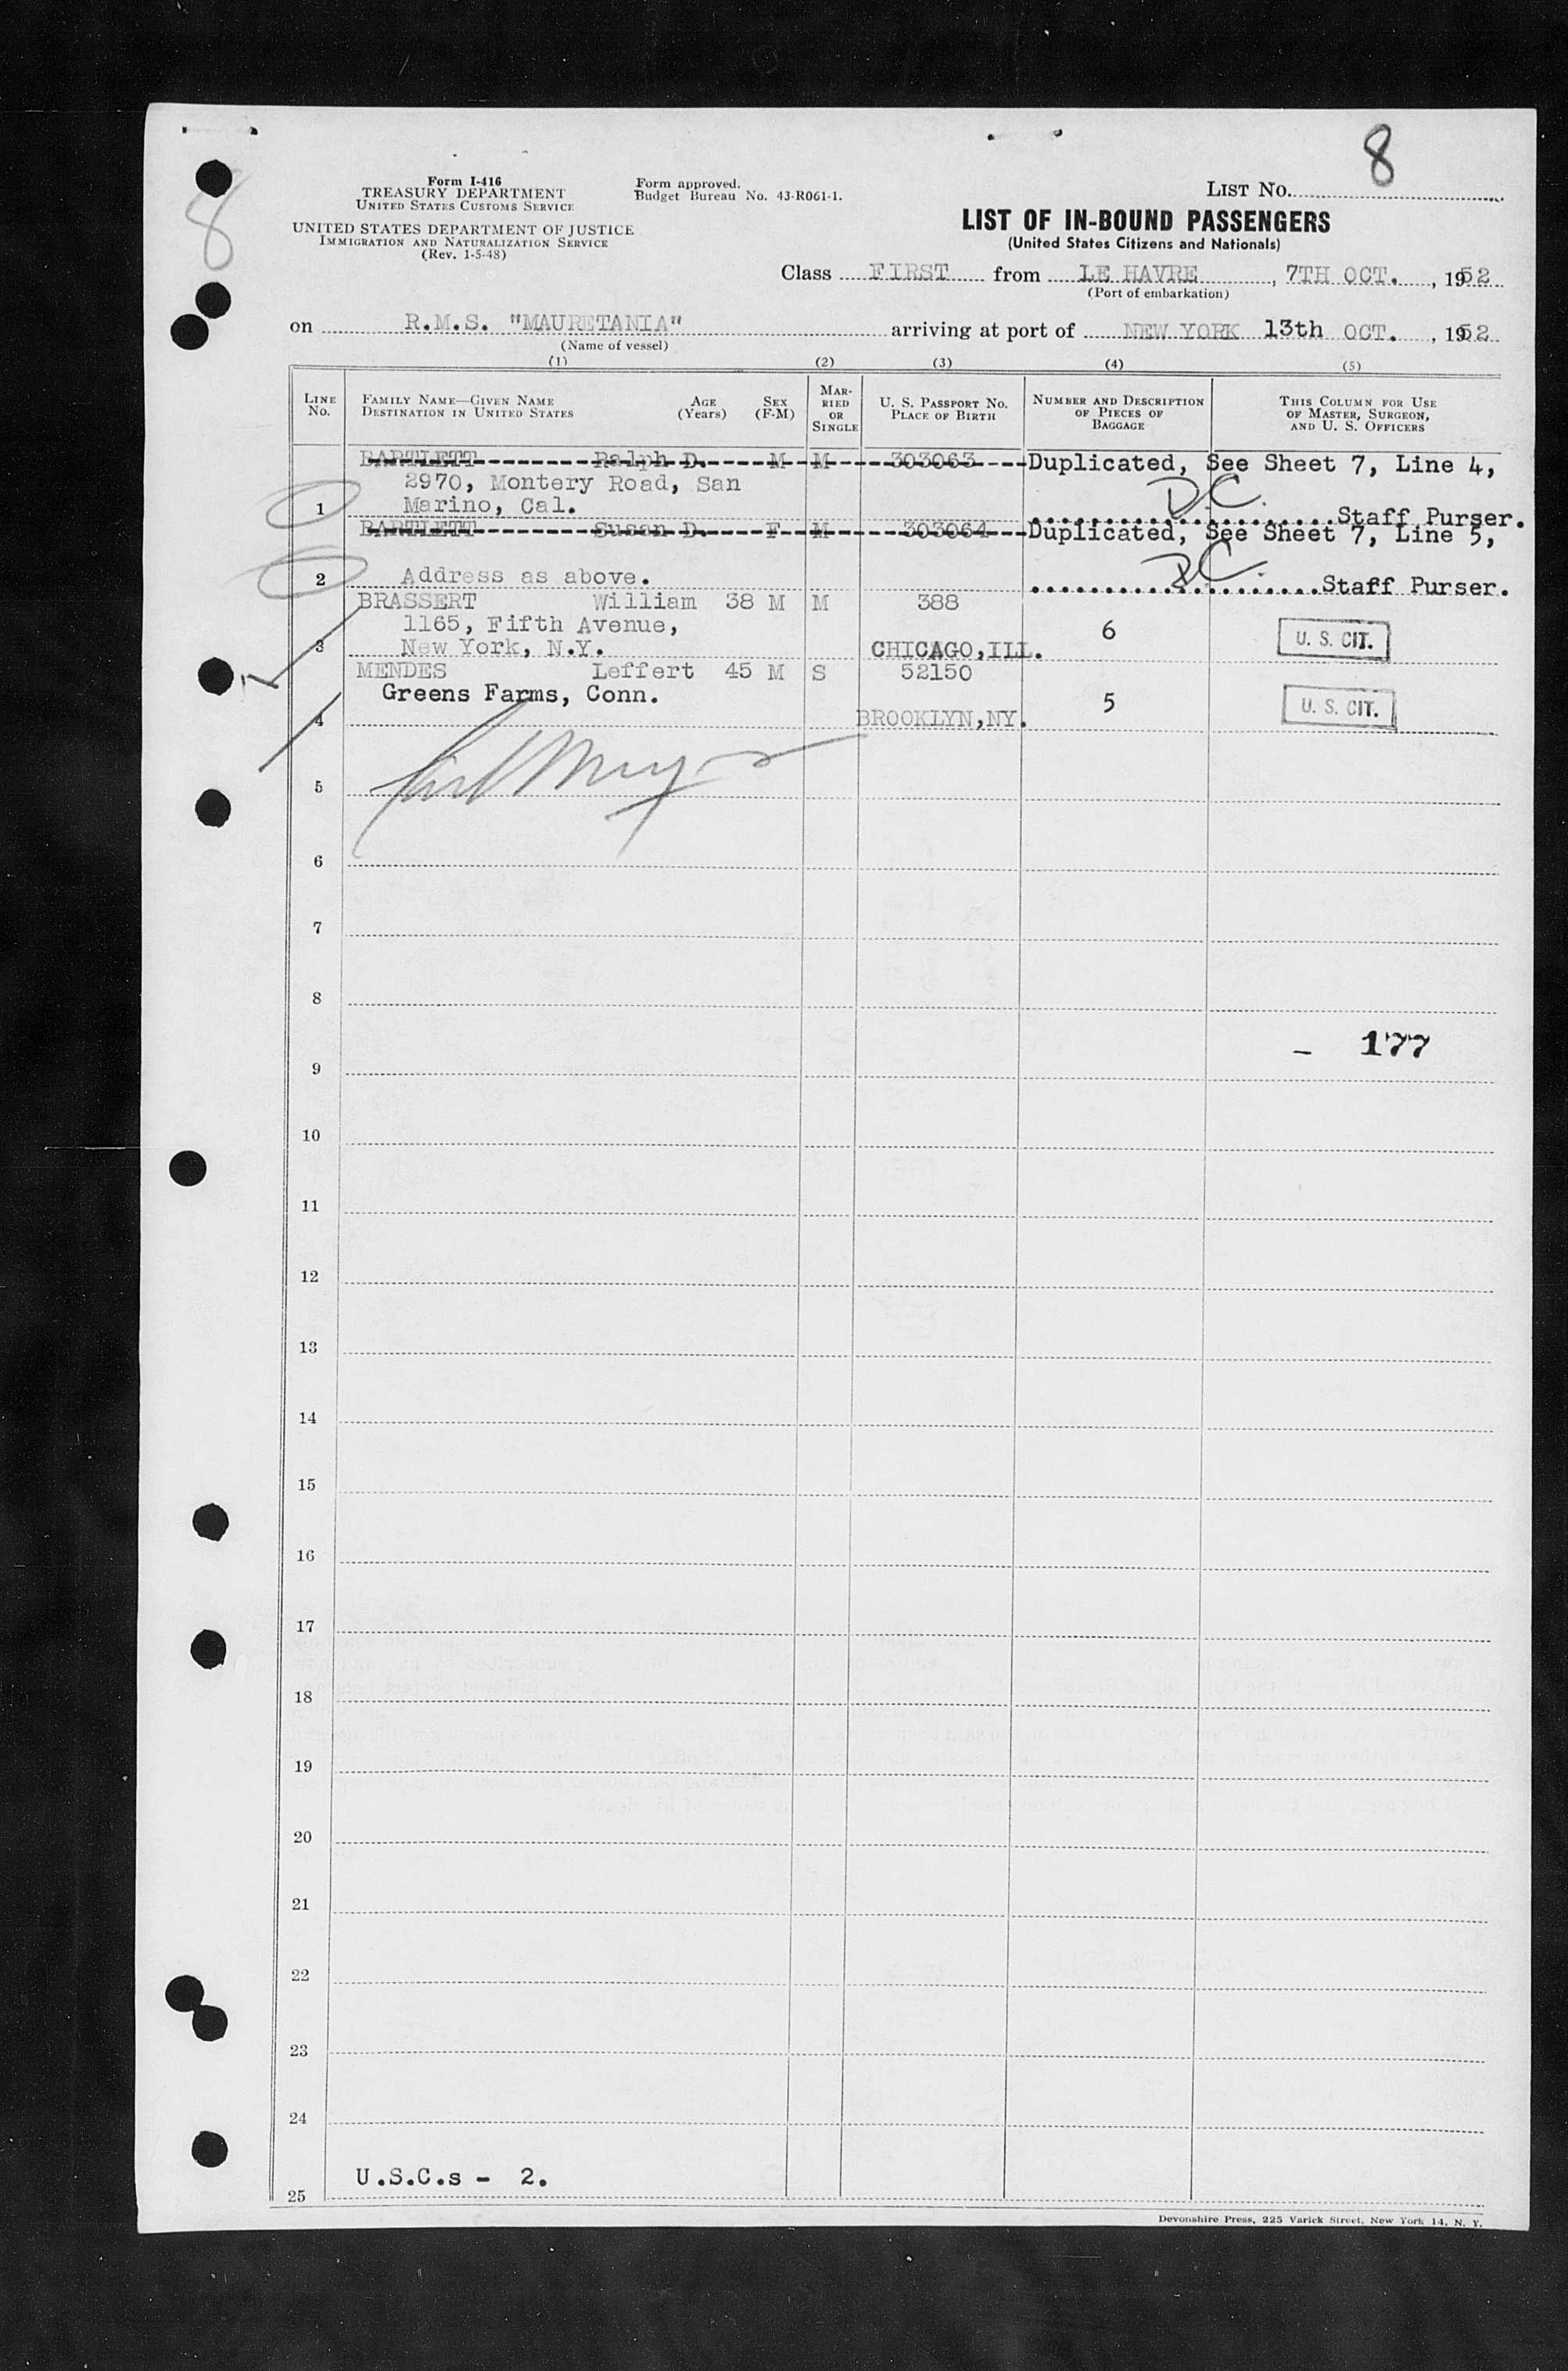 8
8
Form I-416
TREASURY DEPARTMENT
UNITED STATES CUSTOMS SERVICE
UNITED STATES DEPARTMENT OF JUSTICE
IMMIGRATION AND NATURALIZATION SERVICE
(Rev. 1-5-48)
Form approved.
Budget Bureau No. 43-R061-1.
LIST NO.
LIST OF IN-BOUND PASSENGERS
(United States Citizens and Nationals)
Class FIRST from LE HAVRE, 7TH OCT., 1952
(Port of embarkation)
on R.M.S. "MAURETANIA" arriving at port of NEW YORK 13th OCT., 1952
(Name of vessel)
(1) (2) (3) (4) (5)
LINE NO.
FAMILY NAME—GIVEN NAME DESTINATION IN UNITED STATES
AGE (Years)
SEX (F-M)
MARRIED OR SINGLE
U. S. PASSPORT NO. PLACE OF BIRTH
NUMBER AND DESCRIPTION OF PIECES OF BAGGAGE
THIS COLUMN FOR USE OF MASTER, SURGEON, AND U. S. OFFICERS
BARTLETT Ralph D. M M 303063 Duplicated, See Sheet 7, Line 4,
2970, Montery Road, San
1 Marino, Cal. D.C. Staff Purser.
BARTLETT Susan D. F M 303064 Duplicated, See Sheet 7, Line 5,
2 Address as above. D.C. Staff Purser.
BRASSERT William 38 M M 388
1165, Fifth Avenue, 6 U. S. CIT.
3 New York, N.Y. CHICAGO,ILL.
MENDES Leffert 45 M S 52150
Greens Farms, Conn. 5 U. S. CIT.
4 BROOKLYN,NY.
5
6
7
8
- 177
9
10
11
12
13
14
15
16
17
18
19
20
21
22
23
24
U.S.C.s - 2.
25
Devonshire Press, 225 Varick Street, New York 14, N. Y.